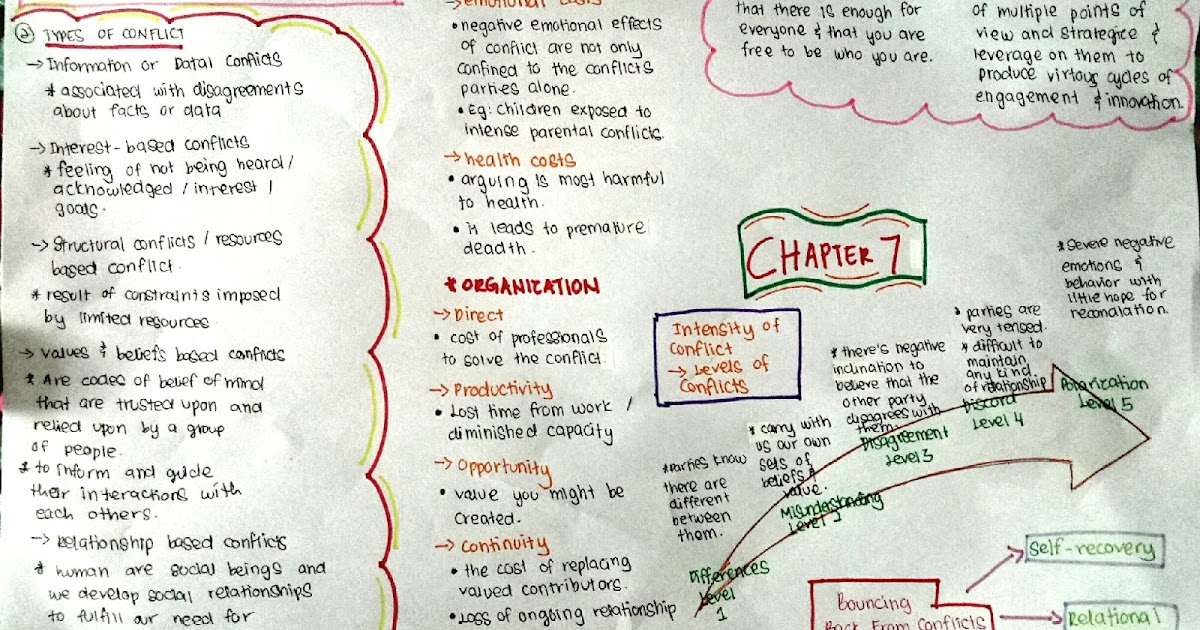 ② TYPES OF CONFLICT
→ Information or Datal Conflicts
* associated with disagreements
about facts or data
→ Interest-based conflicts
* feeling of not being heard /
acknowledged / interest /
goals.
→ Structural conflicts / resources
based conflict.
* result of constraints imposed
by limited resources.
→ values & beliefs based conflicts
* Are codes of belief of mind
that are trusted upon and
relied upon by a group
of people.
* to inform and guide
their interactions with
each others.
→ Relationship based conflicts
* human are social beings and
we develop social relationships
to fulfill our need for
→ emotional costs
• negative emotional effects
of conflict are not only
confined to the conflicts
parties alone.
• Eg: children exposed to
intense parental conflicts
→ health costs
• arguing is most harmful
to health.
• it leads to premature
deadth.
* ORGANIZATION
→ Direct
• cost of professionals
to solve the conflict.
→ Productivity
• Lost time from work /
diminished capacity
→ Opportunity
• value you might be
created.
→ Continuity
• the cost of replacing
valued contributors.
• Loss of ongoing relationship
that there is enough for
everyone & that you are
free to be who you are.
of multiple points of
view and strategice &
leverage on them to
produce virtous cycles of
engagement & innovation.
CHAPTER 7
Intensity of
Conflict
→ Levels of
Conflicts
* parties know
there are
different
between
them.
Differences
Level
1
* carry with
us our own
sets of
beliefs &
value.
Misunderstanding
Level 2
* there's negative
inclination to
believe that the
other party
disagrees with
them.
Disagreement
Level 3
* parties are
very tensed.
* difficult to
maintain
any kind
of relationship
Discord
Level 4
* Severe negative
emotions &
behavior with
little hope for
reconalation.
Polarization
Level 5
Bouncing
Back From Conflicts
Self-recovery
Relational